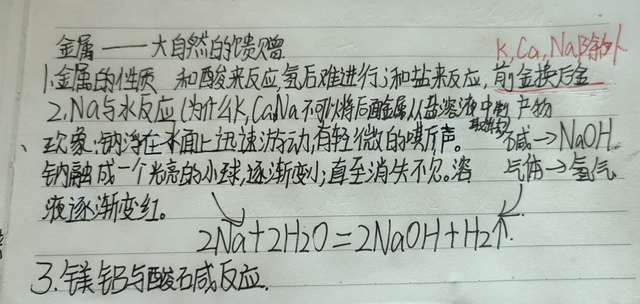 金属——大自然的馈赠
K,Ca,Na除外
1.金属的性质 和酸来反应,氢后难进行;和盐来反应,前金换后金
2.Na与水反应(为什么K,Ca,Na不可以将后面金属从盐溶液中制 产物
现象:钠浮在水面上迅速游动,有轻微的嘶斥声。 碱→NaOH
钠融成一个光亮的小球,逐渐变小,直至消失不见。溶 气体→氢气
液逐渐变红。
2Na+2H2O=2NaOH+H2↑
3.镁铝与酸碱反应.